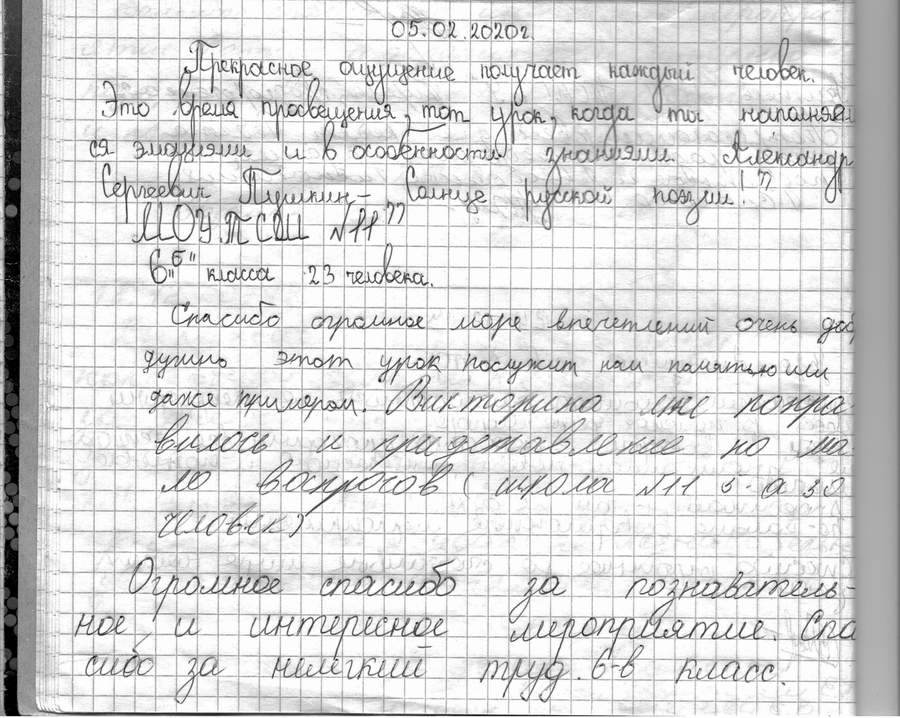 05.02.2020г.
Прекрасное ощущение получает каждый человек.
Это время просвещения, тот урок, когда ты наполняем
ся эмоциями и в особенности знаниями. Александр
Сергеевич Пушкин – Солнце русской поэзии!"
МОУ ТСШ №11"
6"б" класса 23 человека.
Спасибо огромное море впечетлений очень доб
душно этот урок послужит нам памятью или
даже примером. Викторина мне понра-
вилось и придставление но ма-
ло вопросов (школа №11 5-а 30
человек)
Огромное спасибо за познаватель-
ное и интересное мероприятие. Спа
сибо за нелегкий труд. 6-в класс.